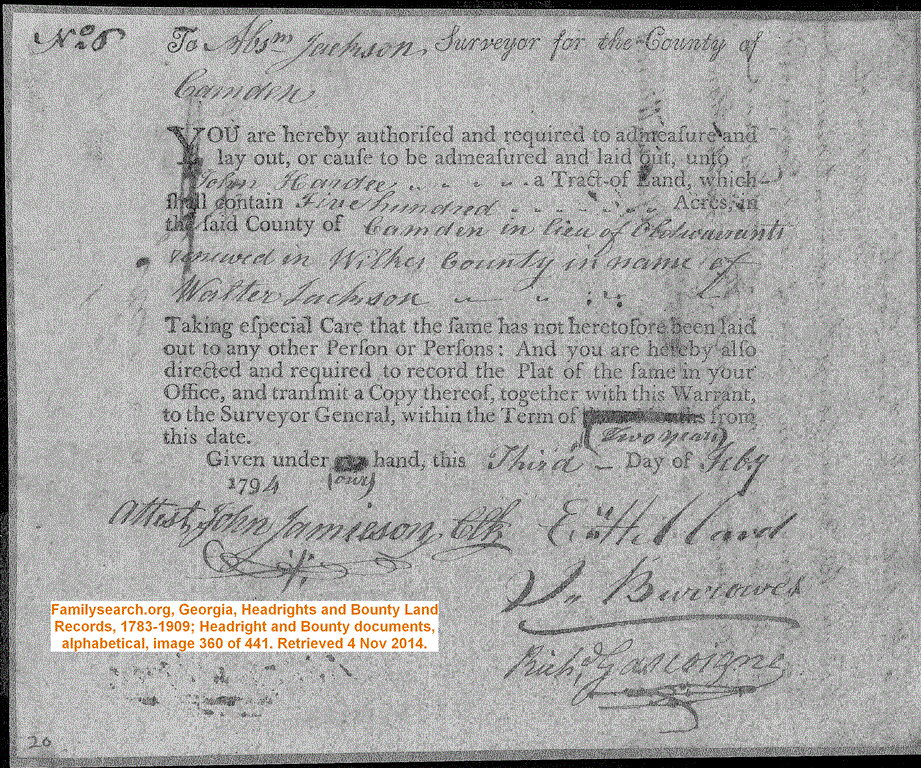 No. 6 To Absm Jackson, Surveyor for the County of
Camden
YOU are hereby authoriſed and required to admeaſure and
lay out, or cauſe to be admeaſured and laid out, unto
John Hardee a Tract of Land, which
ſhall contain Five hundred Acres, in
the ſaid County of Camden in lieu of Old warrants
renewed in Wilkes County in name of
Walter Jackson
Taking eſpecial Care that the ſame has not heretofore been laid
out to any other Perſon or Perſons: And you are hereby alſo
directed and required to record the Plat of the ſame in your
Office, and tranſmit a Copy thereof, together with this Warrant,
to the Surveyor General, within the Term of from
(Two years)
this date.
Given under hand, this Third Day of Feby
1794 (our)
Attest, John Jamieson, Clk
Burrowes
Richd Gascoigne
Familysearch.org, Georgia, Headrights and Bounty Land
Records, 1783-1909; Headright and Bounty documents,
alphabetical, image 360 of 441. Retrieved 4 Nov 2014.
20